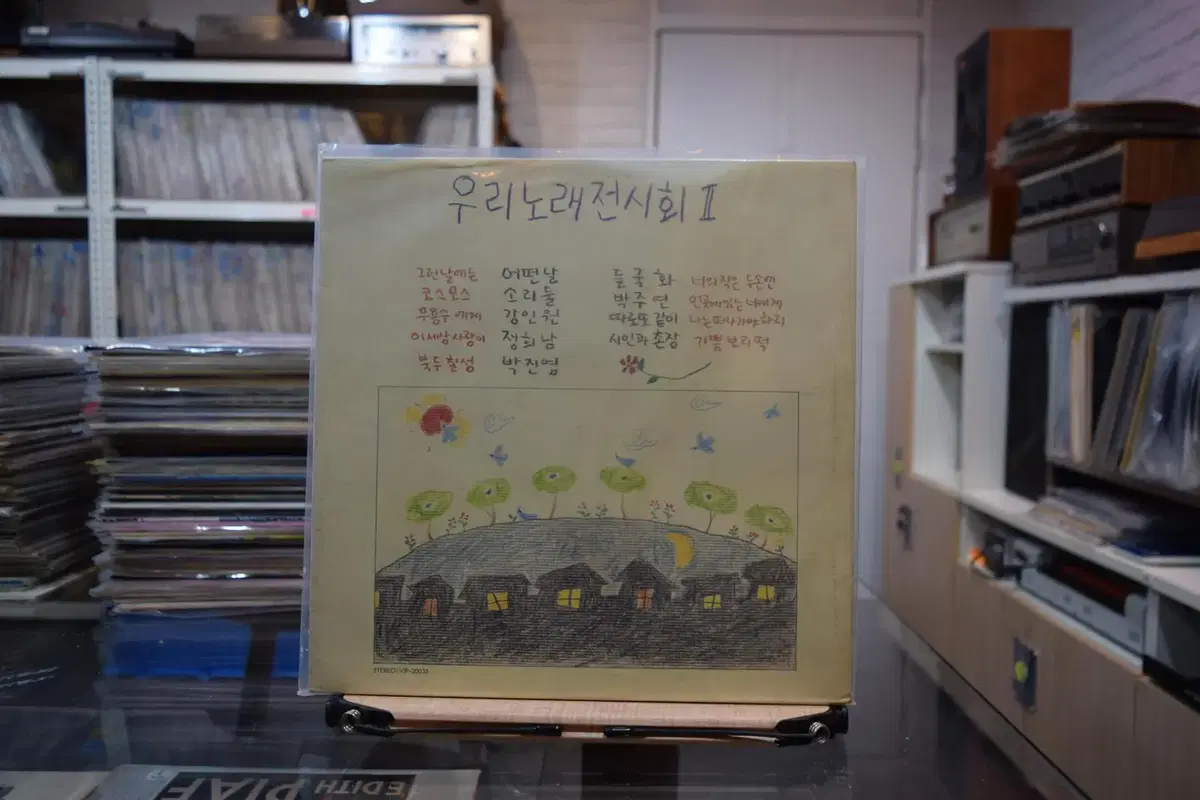 우리노래전시회 II
그런날에는 어떤날
코스모스 소리둘
무용수에게 강인원
이세상사랑이 정희남
북두칠성 박진영
들국화 너의작은두손엔
박주연 인
따로또같이 나는떠나가야하리
시인과 촌장 기쁨보리떡
STEREO/VIP-20033
EDITH PIAF